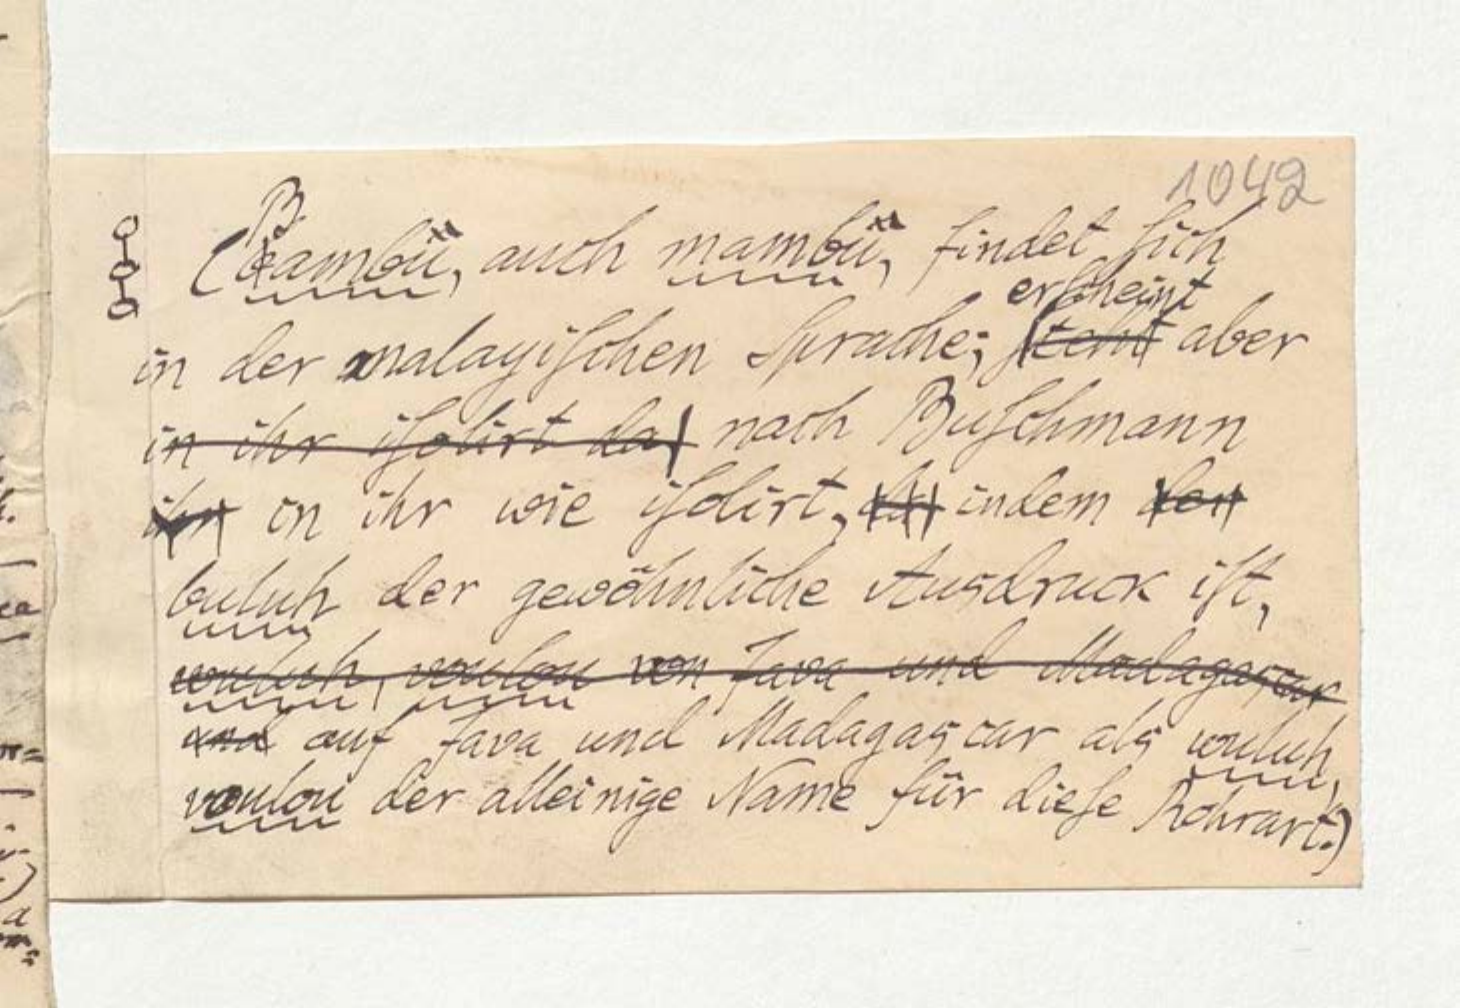 1042
(Bambū, auch mambū, findet ſich
erſcheint
in der malayiſchen Sprache; ſteht aber
in ihr iſolirt da, nach Buſchmann
in ihr wie iſolirt, indem
buluh der gewöhnliche Ausdruck iſt,
wuluh, voulou von Java und Madagascar
und auf Java und Madagascar als wuluh,
voulou der alleinige Name für dieſe Rohrart.)